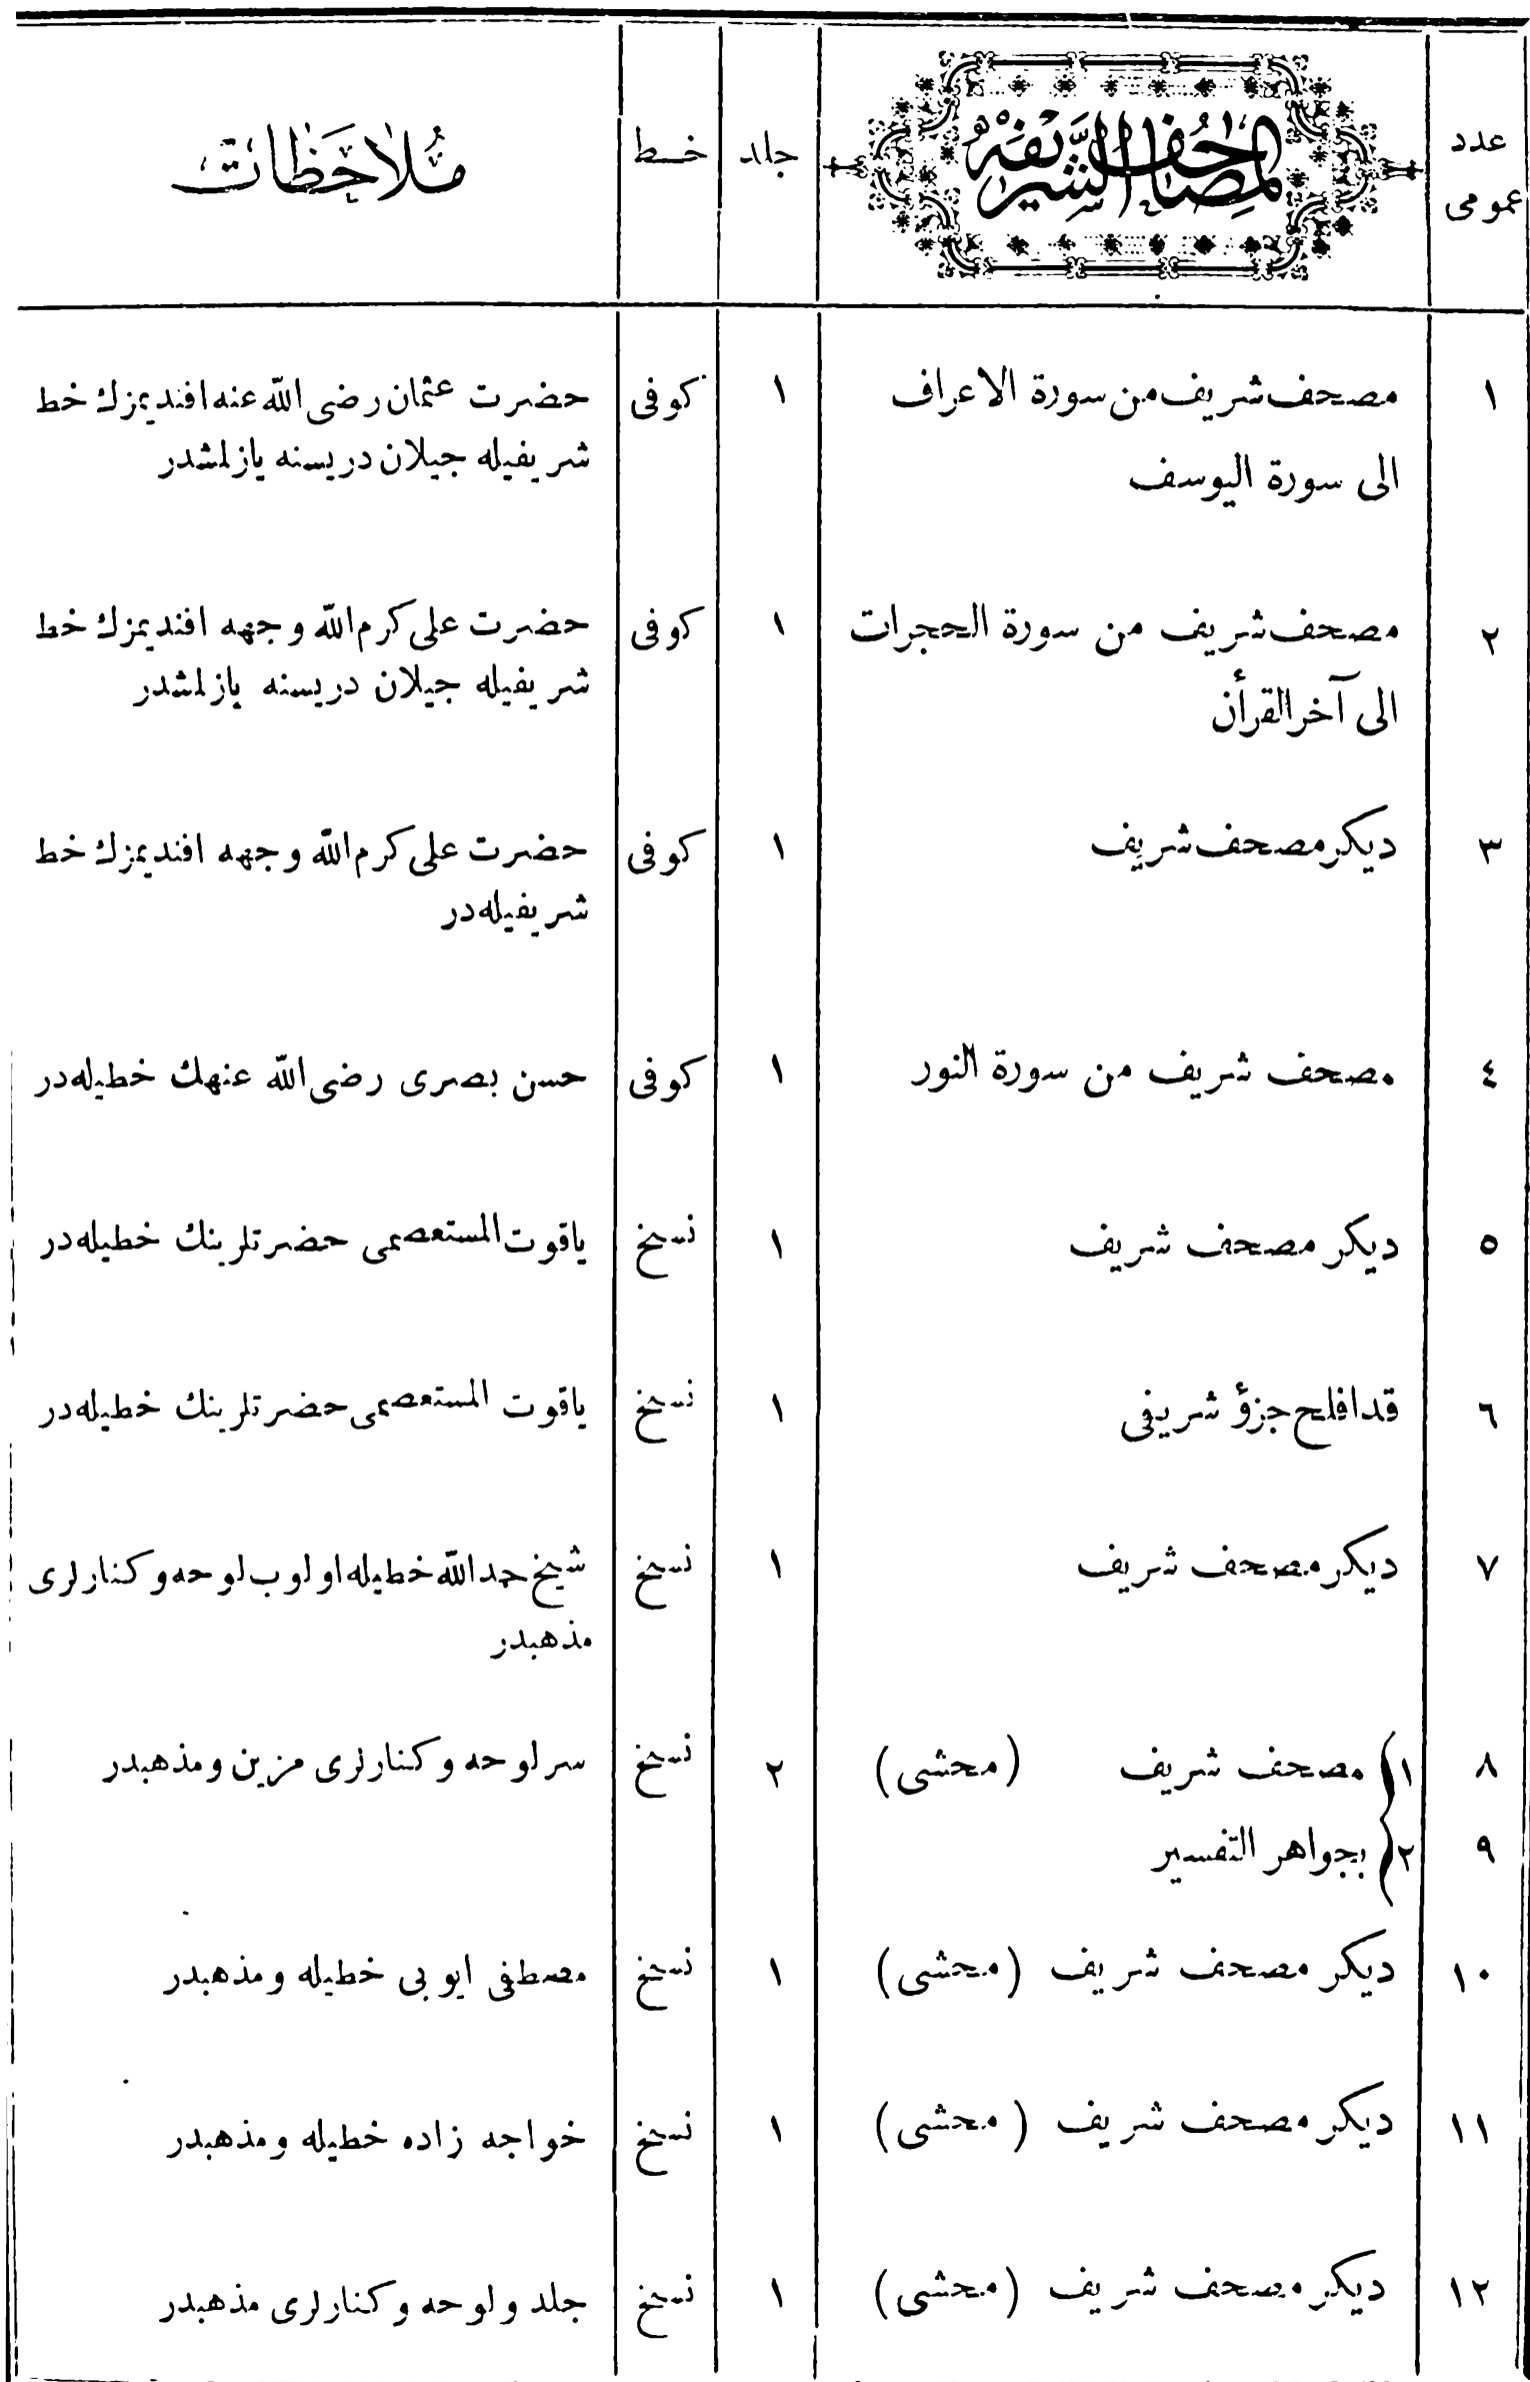 عدد عمومى المصاحف الشريفه جلد خط ملاحظات
١ مصحف شريف من سورة الاعراف ١ كوفى حضرت عثمان رضى الله عنه افنديمزك خط
الى سورة اليوسف شريفيله جيلان دريسنه يازلمشدر
٢ مصحف شريف من سورة الحجرات ١ كوفى حضرت على كرم الله وجهه افنديمزك خط
الى آخر القرأن شريفيله جيلان دريسنه يازلمشدر
٣ ديكر مصحف شريف ١ كوفى حضرت على كرم الله وجهه افنديمزك خط
شريفيله در
٤ مصحف شريف من سورة النور ١ كوفى حسن بصرى رضى الله عنهك خطيله در
٥ ديكر مصحف شريف ١ نسخ ياقوت المستعصمى حضرتلرينك خطيله در
٦ قد افلح جزؤ شريفى ١ نسخ ياقوت المستعصمى حضرتلرينك خطيله در
٧ ديكر مصحف شريف ١ نسخ شيخ حمد الله خطيله اولوب لوحه وكنارلرى
مذهبدر
٨ ١) مصحف شريف (محشى) ٢ نسخ سرلوحه وكنارلرى مزين ومذهبدر
٩ ٢) بجواهر التفسير
١٠ ديكر مصحف شريف (محشى) ١ نسخ مصطفى ايوبى خطيله ومذهبدر
١١ ديكر مصحف شريف (محشى) ١ نسخ خواجه زاده خطيله ومذهبدر
١٢ ديكر مصحف شريف (محشى) ١ نسخ جلد ولوحه وكنارلرى مذهبدر